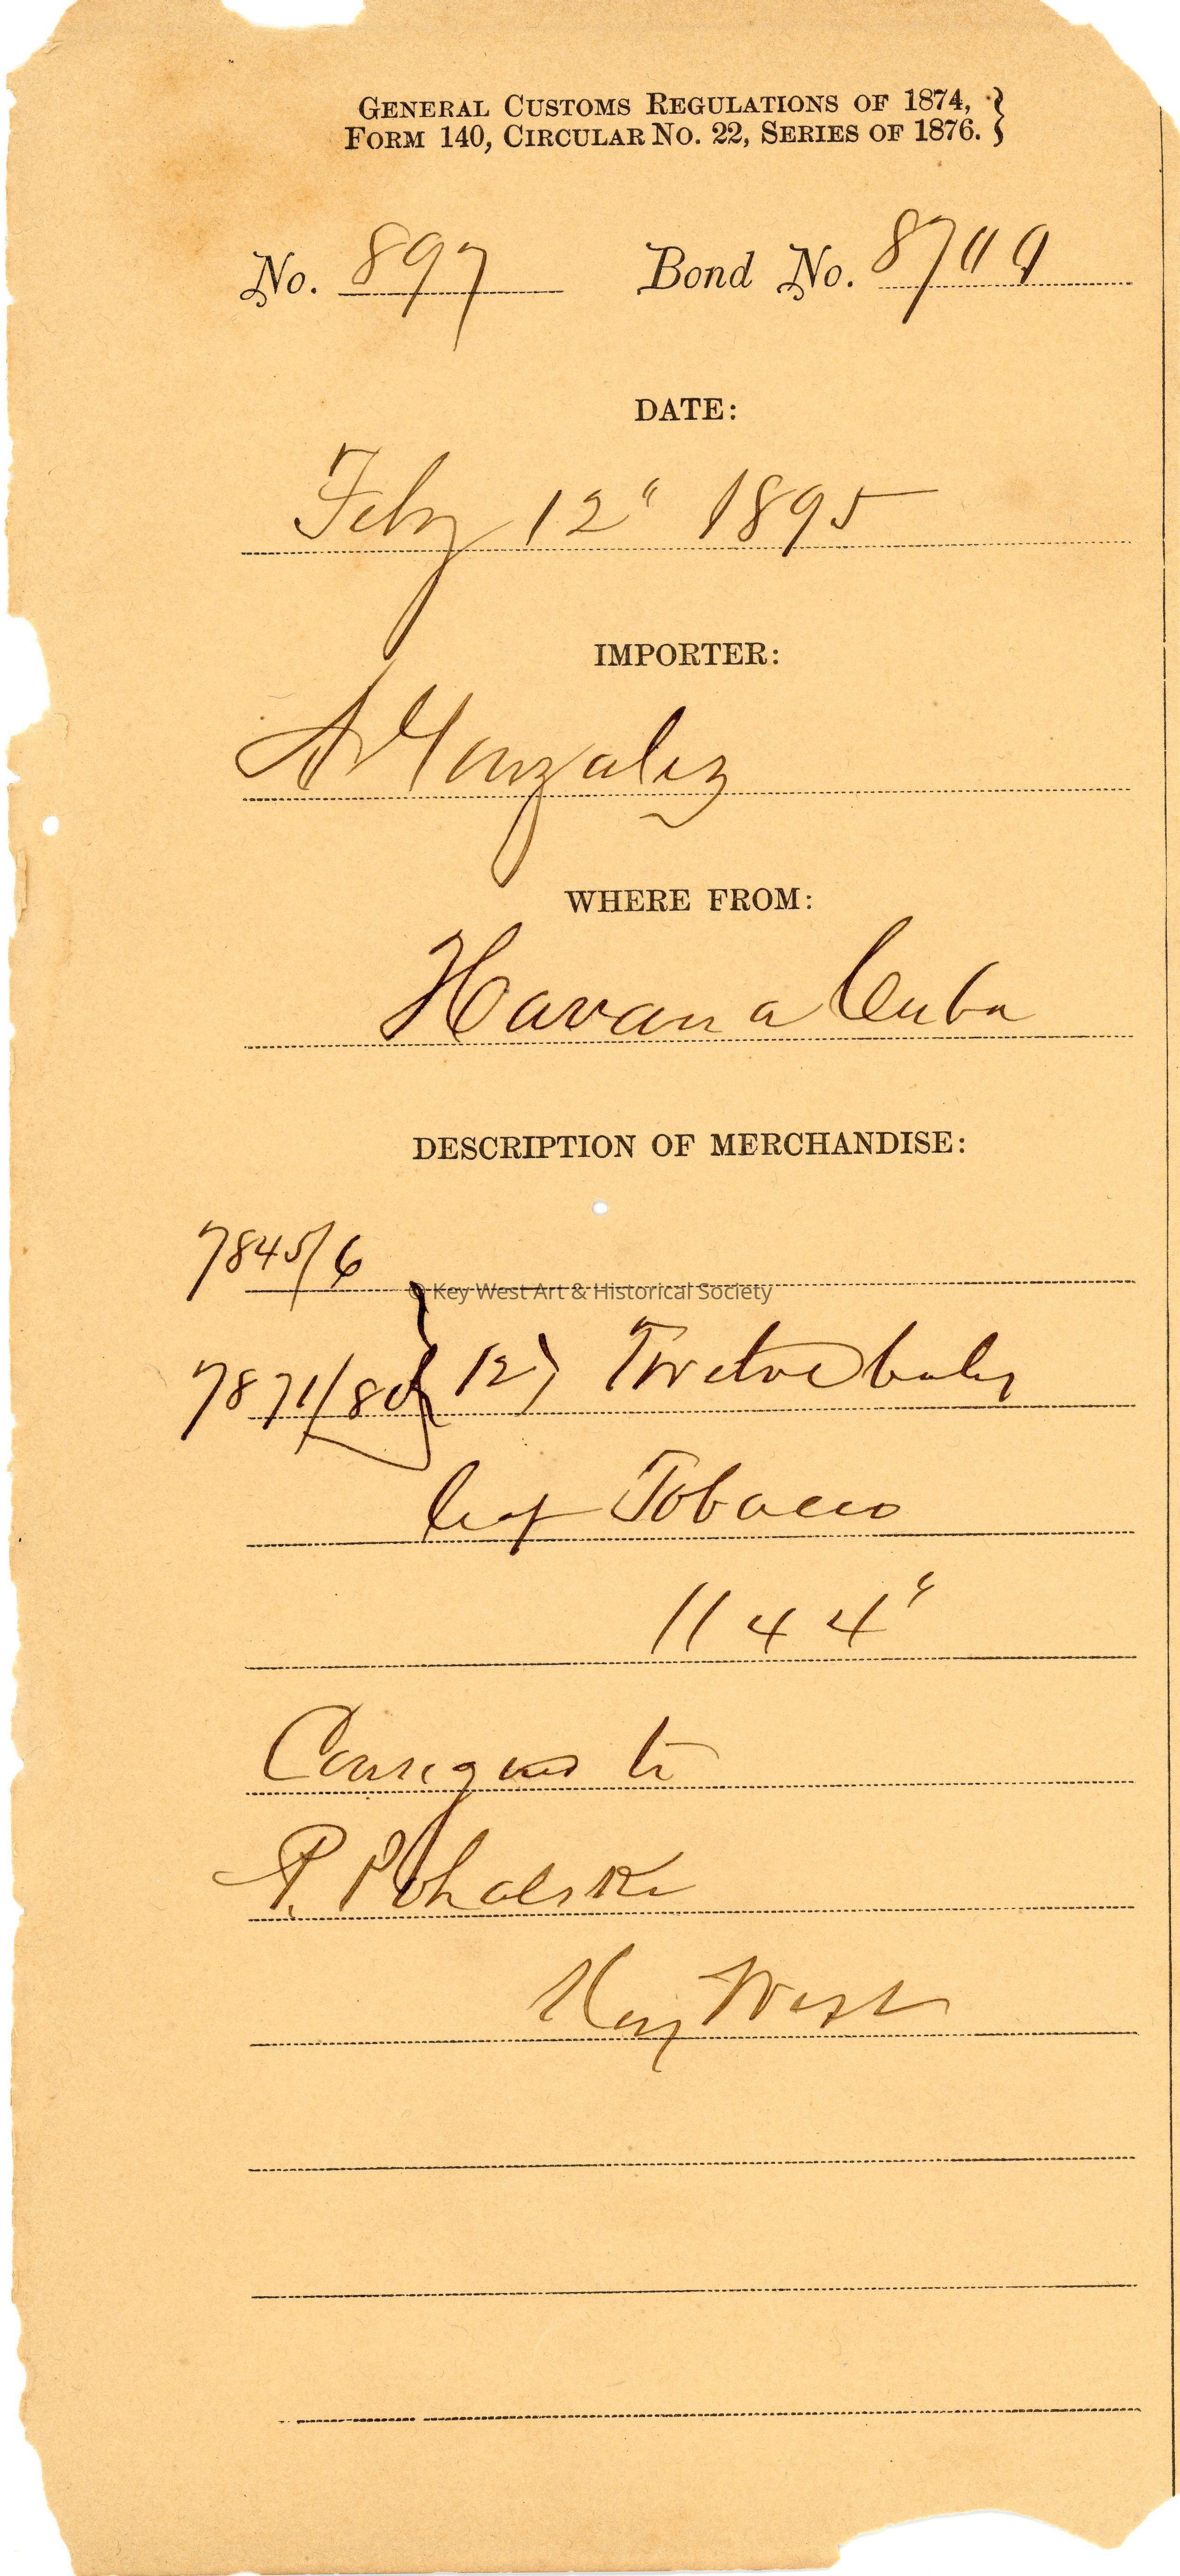 GENERAL CUSTOMS REGULATIONS OF 1874, }
FORM 140, CIRCULAR NO. 22, SERIES OF 1876. }
No. 897 Bond No.
DATE:
Feby 12" 1895
IMPORTER:
A Gonzalez
WHERE FROM:
Havana Cuba
DESCRIPTION OF MERCHANDISE:
7845/6
© Key West Art & Historical Society
7871/80 } 12) Twelve bales
leaf Tobacco
1144"
Consigned to
P. Pohalski
Key West